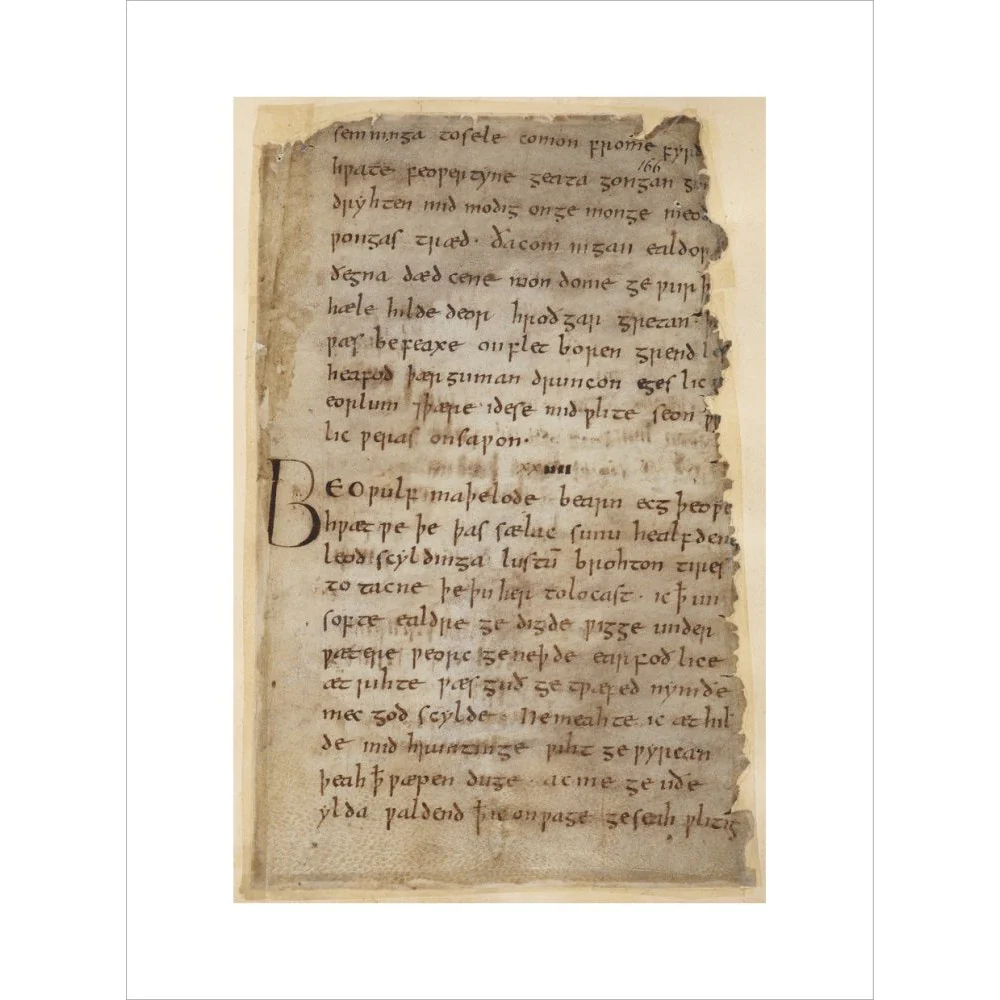 semninga tosele comon frome fyrd
166
hƿate feoƿertyne geata gongan gu
dryhten mid modig onge monge meodo
ƿongas træd · ða com in gan ealdor
ðegna dæd cene mon dome ge ƿurþ
hæle hilde deor hroðgar gretan · þ
ƿæs be feaxe on flet boren grend
heafod þær guman druncon eges lic
eorlum ⁊ þære idese mid ƿlite seon
lic ƿeras onsaƿon ·
xxiiii
BEOǷulf maþelode bearn ecgþeoƿes
hƿæt ƿe þe þas sælac sunu healfdenes
leod scyldinga lustū brohton tires
to tacne þe þu her tolocast · ic ꝥ un
softe ealdre ge digde ƿigge under
ƿætere ƿeorc geneþde earfoð lice
ætrihte ƿæs guð ge tƿæfed nymðe
mec god scylde · Nemeahte ic æt hil
de mid hruntinge ƿiht ge ƿyrcan
þeah ꝥ ƿæpen duge · ac me ge uðe
ylda ƿaldend ꝥ ic on ƿage geseah ƿlitig